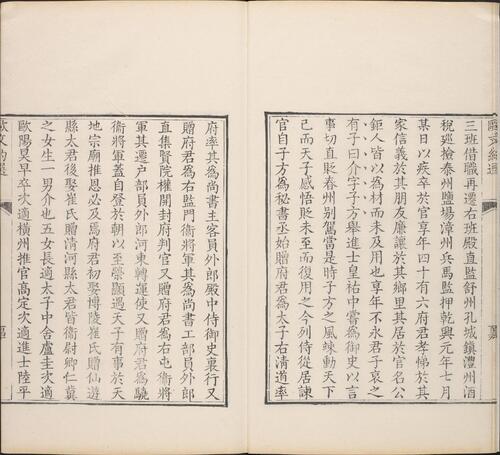 三班借職再遷右班殿直監舒州孔城鎮澧州酒
稅廵撿泰州鹽場漳州兵馬監押乾興元年七月
某日以疾卒於官享年四十有六府君孝悌於其
家信義於其朋友廉讓於其鄉里其居於官名公
鉅人皆以為材而未及用也享年不永君子哀之
有子曰介字子方舉進士皇祐中嘗為御史以言
事切直貶春州别駕當是時子方之風竦動天下
已而天子感悟貶未至而復用之今列侍從居諫
官自子方為秘書丞始贈府君為太子右清道率
府率其為尚書主客員外郎殿中侍御史裏行又
贈府君為右監門衛將軍其為尚書工部員外郎
直集賢院權開封府判官又贈府君為右屯衛將
軍其遷户部員外郎河東轉運使又贈府君為驍
衛將軍蓋自登於朝以至榮顯遇天子有事於天
地宗廟推恩必及焉府君初娶博陵崔氏贈仙遊
縣太君後娶崔氏贈清河縣太君皆衛尉卿仁冀
之女生一男介也五女長適太子中舍盧圭次適
歐陽昊早卒次適橫州推官高定次適進士陸平